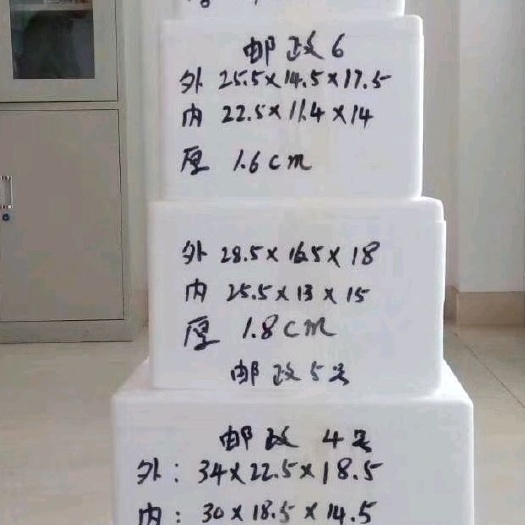 邮政6
外 25.5×14.5×17.5
内 22.5×11.4×14
厚 1.6cm
外 28.5×16.5×18
内 25.5×13×15
厚 1.8cm
邮政5号
邮政 4号
外:34×22.5×18.5
内:30×18.5×14.5